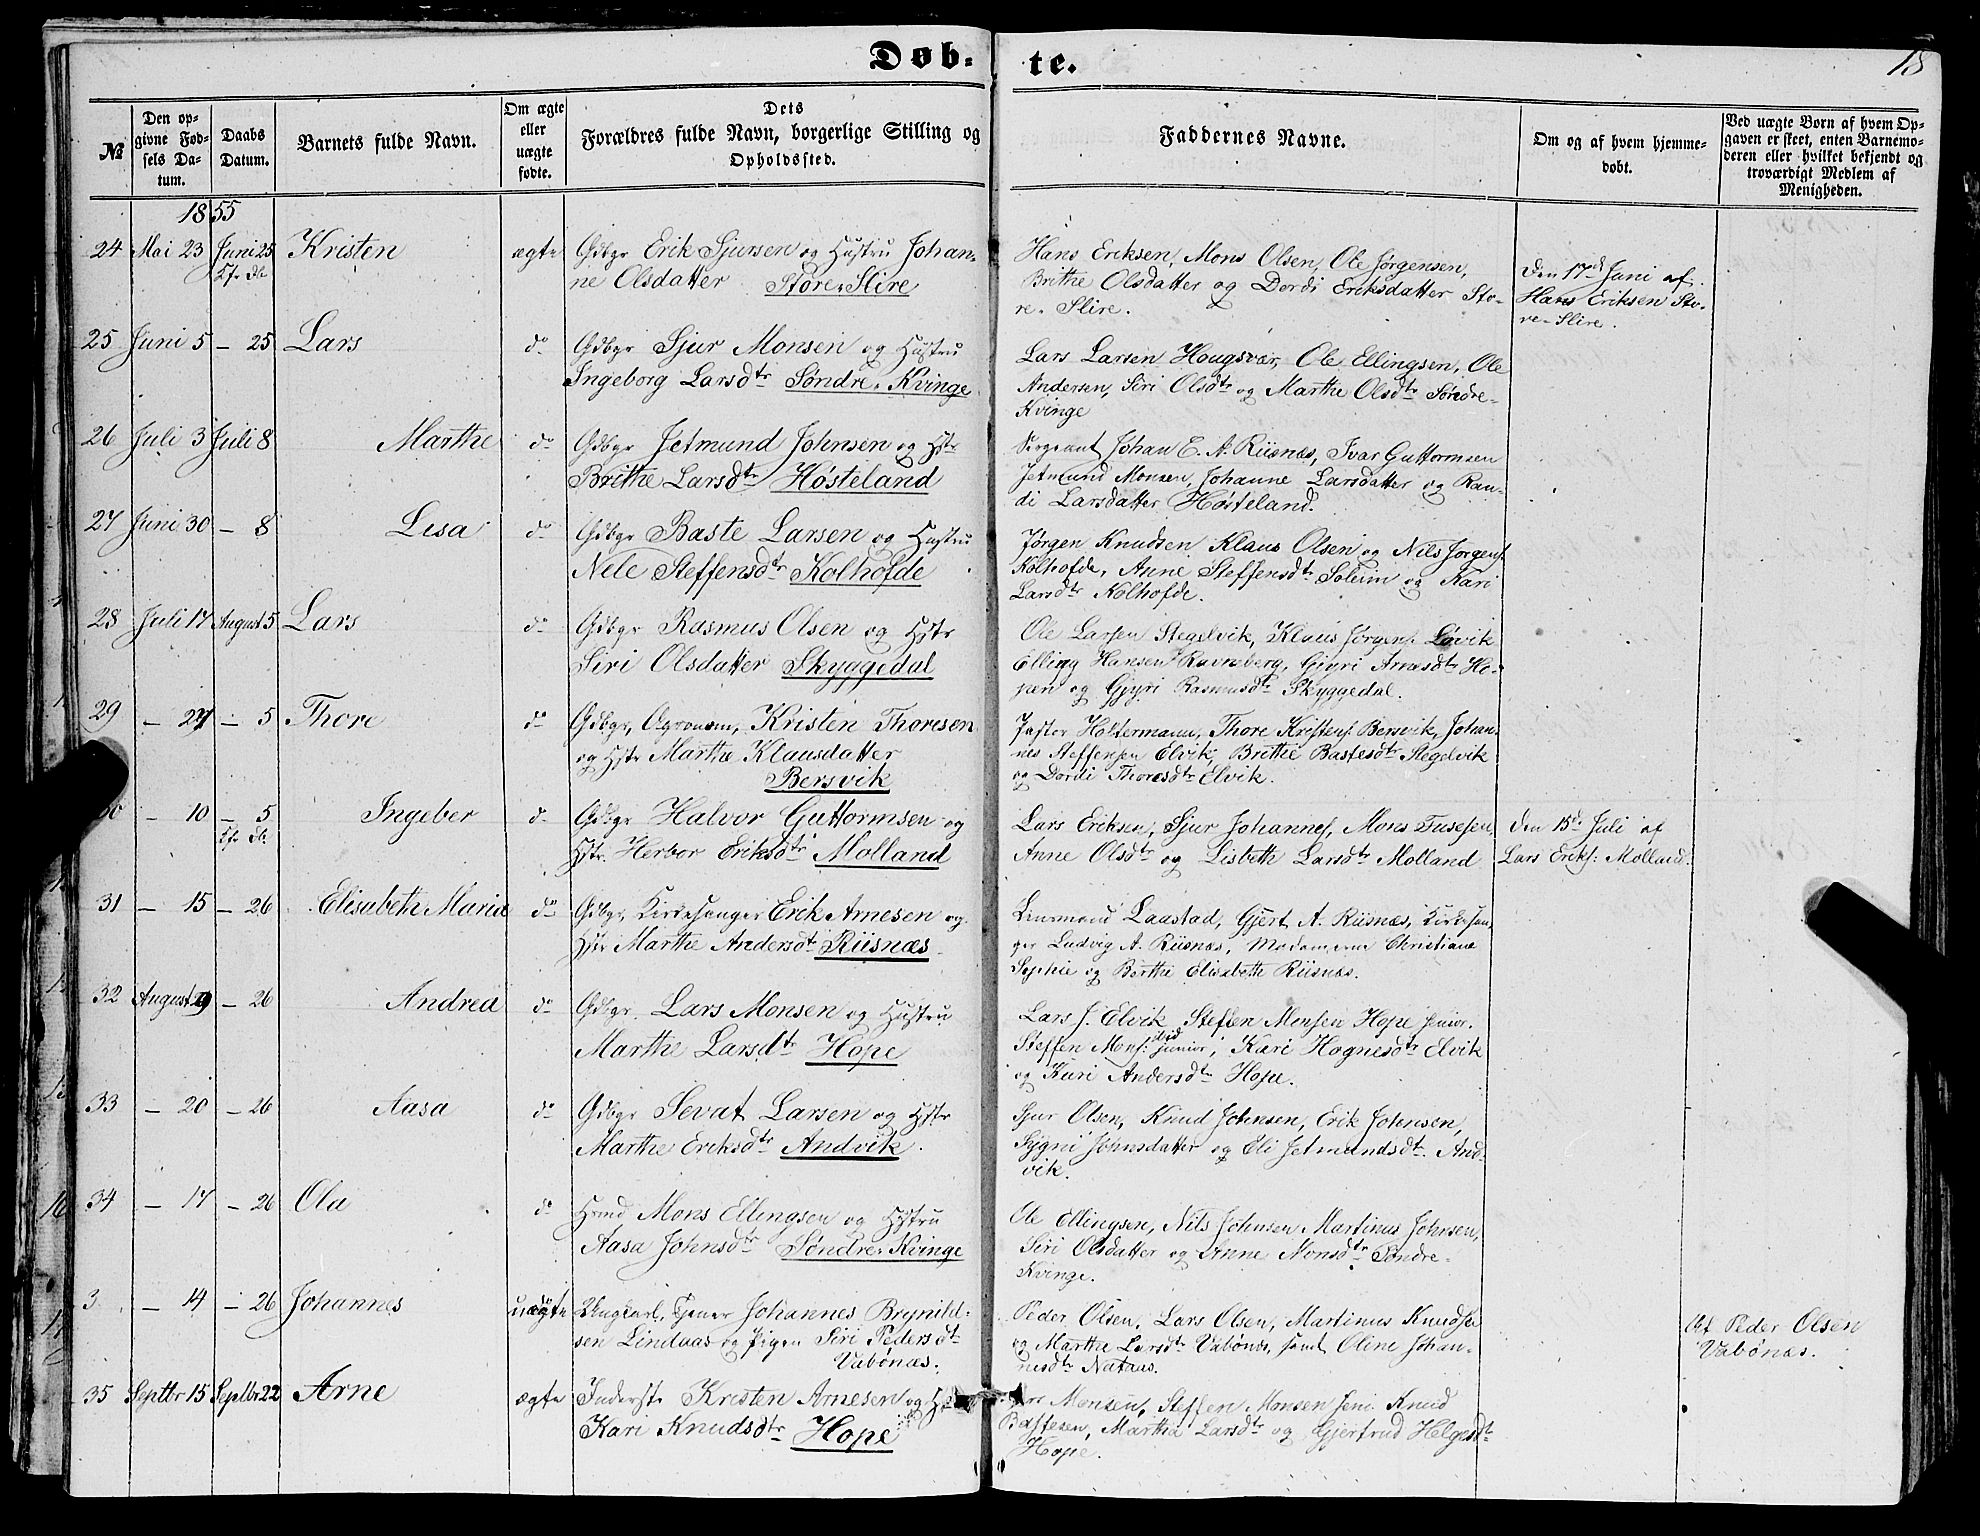 Døb-
te.
18
№
Den op-
givne Fød-
sels Da-
tum.
Daabs
Datum.
Barnets fulde Navn.
Om ægte
eller
uægte
fødte.
Dets
Forældres fulde Navn, borgerlige Stilling og
Opholdssted.
Faddernes Navne.
Om og af hvem hjemme-
døbt.
Ved uægte Børn af hvem Op-
gaven er skeet, enten Barnemo-
deren eller hvilket bekjendt og
troværdigt Medlem af
Menigheden.
1855
24 Mai 23 Juni 25 Kristen ægte Gdbgr Erik Sjursen og Hustru Johan-
ne Olsdatter Store-Slire
Hans Eriksen, Mons Olsen, Ole Jørgensen,
Brithe Olsdatter og Dordi Eriksdatter Sto-
re-Slire.
Den 17d Juni af
Hans Eriksen Sto-
re-Slire.
25 Juni 5 – 25 Lars do Gdbgr Sjur Monsen og Hustru
Ingeborg Larsdtr Søndre-Kvinge
Lars Larsen Hougsvær, Ole Ellingsen, Ole
Andersen, Siri Olsdtr og Marthe Olsdtr Søndre-
Kvinge
26 Juli 3 Juli 8 Marthe do Gdbgr Jetmund Johnsen og Hstr
Brithe Larsdtr Høsteland
Sergeant Johan E. A. Riisnæs, Ivar Guttormsen
Jetmund Monsen, Johanne Larsdatter og Ran-
di Larsdatter Høsteland.
27 Juni 30 – 8 Lisa do Gdbgr Baste Larsen og Hustru
Nele Steffensdtr Kolhofde
Jørgen Knudsen Klaus Olsen og Nils Jørgens.
Kolhofde, Anne Steffensdtr Soleim og Kari
Larsdtr Kolhofde.
28 Juli 17 August 5 Lars do Gdbgr Rasmus Olsen og Hstr
Siri Olsdatter Skyggedal
Ole Larsen Stegelvik, Klaus Jørgens. Løvik
Elling Hansen Ravneberg, Gjyri Arnesdtr Ho-
pen og Gjyri Rasmusdtr Skyggedal.
29 – 27 – 5 Thore do Gdbgr, Agronom, Kristen Thoresen
og Hstr Marthe Klausdatter
Bersvik
Paster Holtermann, Thore Kristens. Bersvik, Johan-
nes Steffensen Elvik, Brithe Bastesdtr Stegelvik
og Dordi Thoresdtr Elvik.
– 10 – 5 Ingeber do Gdbgr Halvor Guttormsen og
Hstr. Herbor Eriksdtr Molland
Lars Eriksen, Sjur Johannes., Mons
Anne Olsdtr og Lisbeth Larsdtr Molland
Den 15d Juli af
Lars Eriks. Molland.
31 – 15 – 26 Elisabeth Maria do Gdbgr, Kirkesanger Erik Arnesen og
Hstr Marthe Andersdtr Riisnæs
Lensmand Laastad, Gjert A. Riisnæs, Kirkesan-
ger Ludvig A. Riisnæs, Madamerne Christiane
Sophie og Berthe Elisabeth Riisnæs.
32 August – 26 Andrea do Gdbgr. Lars Monsen og Hustru
Marthe Larsdtr Hope
Lars J. Elvik Steffen Monsen Hope senior.
Steffen Mons. ibid junior, Kari Hognesdtr Elvik
og Kari Andersdtr Hope.
33 – 20 – 26 Aasa do Gdbgr Sevat Larsen og Hstr
Marthe Eriksdtr Andvik
Sjur Olsen, Knud Johnsen, Erik Johnsen,
Sygni Johnsdatter og Eli Jetmundsdt. And-
vik.
34 – 17 – 26 Ola do Hmd Mons Ellingsen og Hstru
Aasa Johnsdtr Søndre-Kvinge
Ole Ellingsen, Nils Johnsen Martinus Johnsen,
Siri Olsdatter og Anne Monsdtr Søndre-
Kvinge.
3 – 14 – 26 Johannes uægte Ungkarl, Tjener Johannes Brynild-
sen Lindaas og Pigen Siri Pedersdt
Vabønæs.
Peder Olsen, Lars Olsen, Martinus Knudsen
og Marthe Larsdtr Vabønæs, samt Oline Johan-
nesdtr Nataas.
Af Peder Olsen
Vabønæs.
35 Septbr 15 Septbr 22 Arne ægte Inderst Kristen Arnesen og
Kari Knudsdtr Hope
Monsen, Steffen Monsen sen. Knud
Bastesen, Martha Larsdtr og Gjertrud Helgesdtr
Hope.